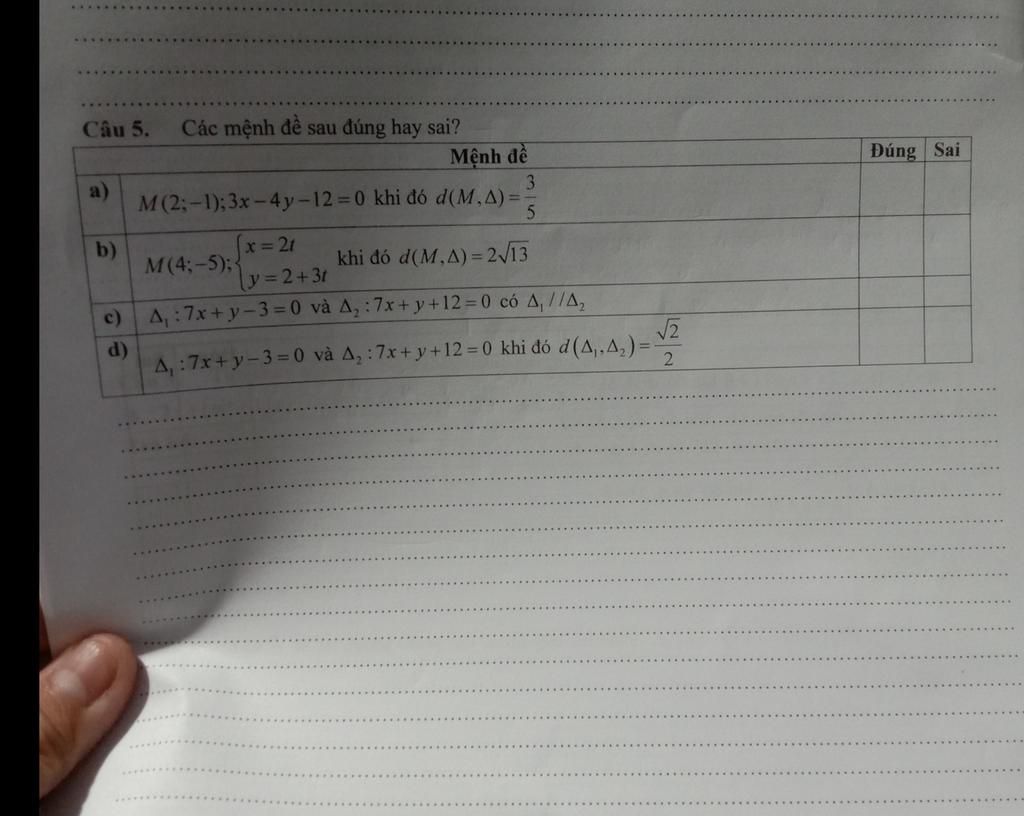 Câu 5. Các mệnh đề sau đúng hay sai?
Mệnh đề Đúng Sai
a) M(2;−1);3x−4y−12=0 khi đó d(M,Δ)=3/5
b) M(4;−5);{x=2t y=2+3t khi đó d(M,Δ)=2√13
c) Δ₁:7x+y−3=0 và Δ₂:7x+y+12=0 có Δ₁//Δ₂
d) Δ₁:7x+y−3=0 và Δ₂:7x+y+12=0 khi đó d(Δ₁,Δ₂)=√2/2